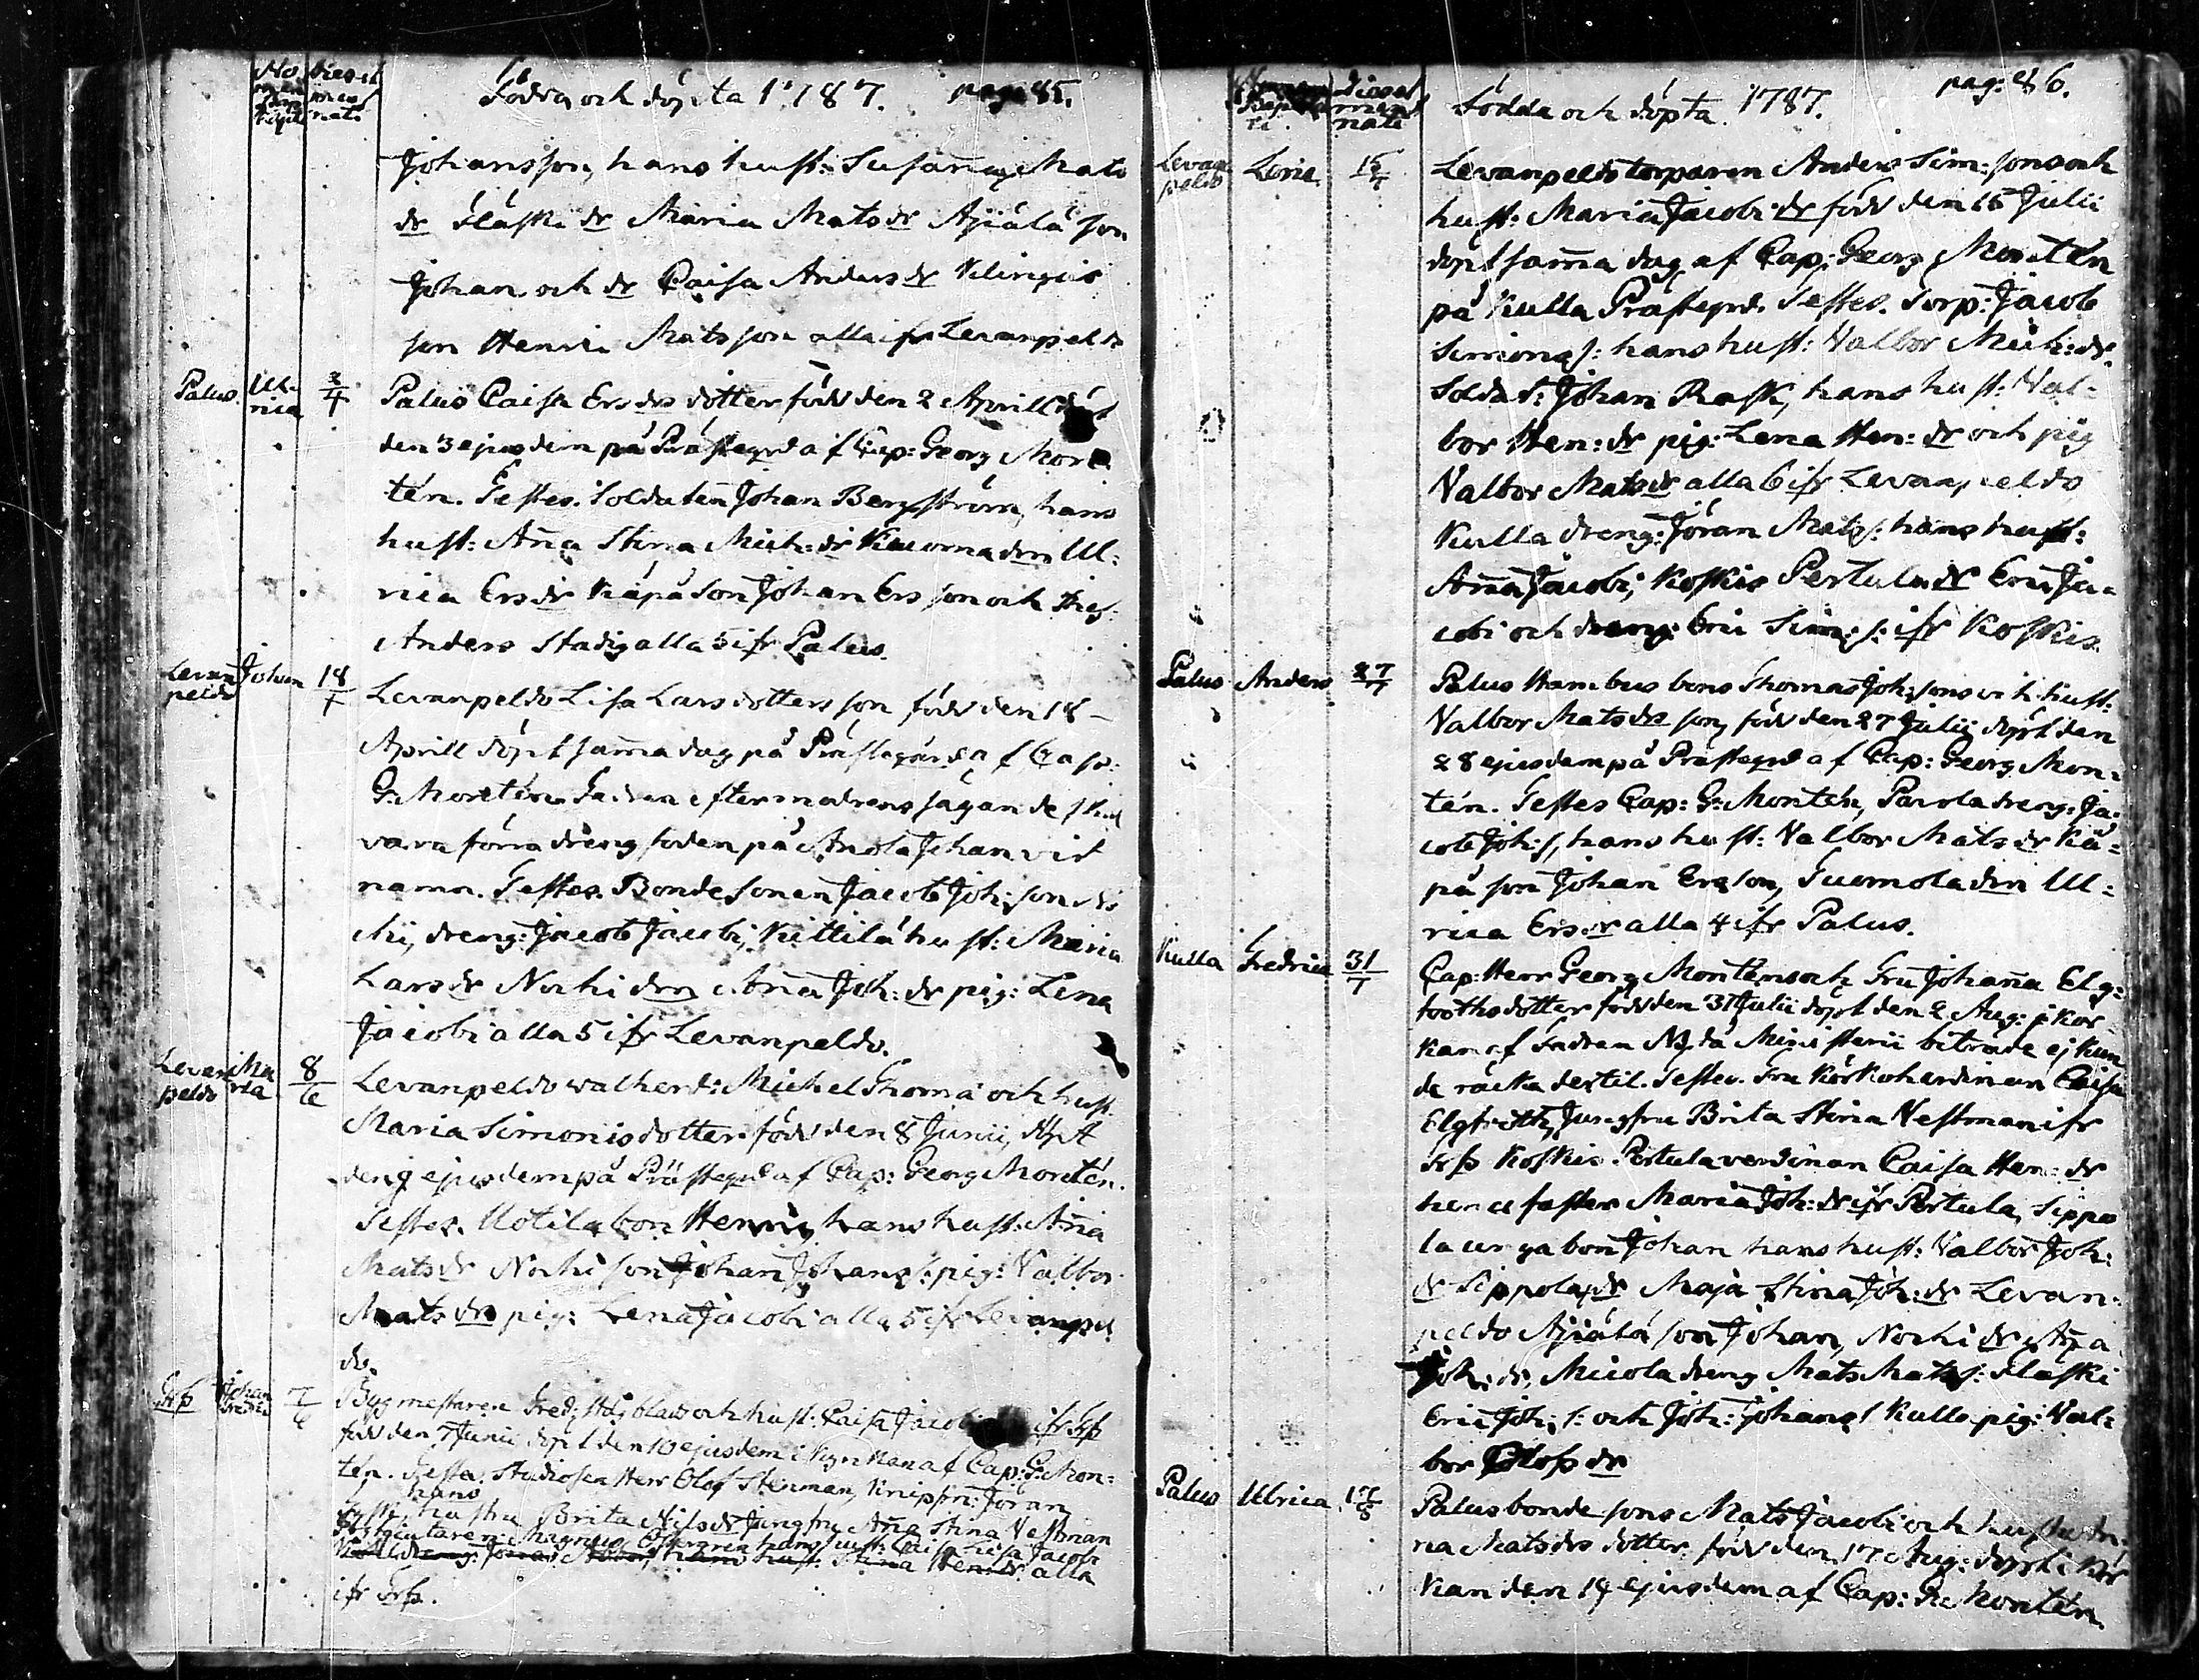 Födda och döpta 1787. pag: 85.
Johansson, hans hust: Susanna Mats
dr Fläski dr Maria Mats dr Ajiälä son
Johan och dr Caisa Anders dr Klingis
son Henric Matsson alla ifr Levanpeldo
Palus Ulrica 2/4 Palus Caisa Ers drs dotter född den 2 Aprill döpt
den 3 ejusdem på Prästegrd af Cap: Georg Mon
tén. Testes. Soldaten Johan Bergström, hans
hust: Anna Stina Mich: dr Kuoma drn Ul:
rica Ers dr Käpä son Johan Ersson och
Anders Stadig alla 5 ifr Palus.
Levanpeldo Johan 18/4 Levanpeldo Lisa Lars dotters son född den 18
Aprill döpt samma dag på Prästegård af Cap:
G: Montén. Fadren efter modrens sägande skal
vara förra dreng Johan vid
namn. Testes. Bonde sonen Jacob Joh: son
dreng: Jacob Jacobi, Kittilä hust: Maria
Lars dr Nochi drn Anna Joh: dr pig: Lena
Jacobi alla 5 ifr Levanpeldo.
Levanpeldo Maria 8/6 Levanpeldo Michel Thomæ och hust
Maria Simonis dotter född den 8 Junii, döpt
den 9 ejusdem på Prästegrd af Cap: Georg Montén.
Testes. Uotila bon Henric, hans hust: Anna
Mats dr Nochi son Johan Johans s: pig: Valbor
Mats dr pig: Lena Jacobi alla 5 ifr Levanpel
do.
Johan Fredric 7/6 Bygmestaren Fred: och hust: Caisa Jacobi
född den 7 Junii döpt den 10 ejusdem i Kyrkan af Cap: G: Mon:
tén. Testes. Studiosen Herr Olof Stenman, Jöran
hans
hustru Brita Nils dr Jungfru Anna Stina Vestman
Magnus hans hust: Caisa Lisa Jacobi
hans hust: Stina Hen: dr alla
ifr
Födda och döpta 1787. pag: 86.
Levanpeldo 15/7 Levanpeldo torparen Anders Sim: sons och
hust: Maria Jacobi dr född den 15 Julii
döpt samma dag af Cap: Georg Montén
på Kulla Prästegrd. Testes. Torp: Jacob
Simons s: hans hust: Valbor Mich: dr.
Soldat: Johan Rask, hans hust: Val=
bor Hen: dr pig: Lena Hen: dr och pig
Valbor Mats dr alla 6 ifr Levanpeldo
Kulla dreng: Jöran Mats s: hans hust:
Anna Jacobi, Koskis Pertula dr Eric Ja=
cobi och dreng: Eric Sim: s: ifr Koskis.
Palus Anders 27/7 Palus bons Thomas Joh: sons och hust:
Valbor Mats drs son, född den 27 Julii döpt den
28 ejusdem på Prästegrd af Cap: Georg Mon=
tén. Testes Cap: G: Montén, Parola dreng: Ja:
cob Joh: s, hans hust: Valbor Mats dr Kä=
pä son Johan Ersson, Tuomola drn Ul:
rica Ers dr alla 4 ifr Palus.
Kulla Fredrica 31/7 Cap: Herr Georg Monténs och Fru Johana Elg:
fooths dotter född den 31 Julii döpt den 2 Aug: i Kör
kan af fadren NB då Ministerii biträde ej kun
de räcka dertil. Testes. Fru Körkoherdinnan Caisa
Elgfooth, Jungfru Brita Stina Vestman ifr
Koskis. Pertula verdinan Caisa Hen: dr
henes faster Maria Joh: dr ifr Pertula, Sippo
la unga bon Johan hans hust: Valbor Joh:
dr Sippola dr Maja Stina Joh: dr Levan:
peldo Ajiälä son Johan, Nochi dr Anna
Joh: dr, Micola dreng Mats Mats s: Fläski
Eric Joh: s: och Joh: Johans s Kulla pig: Val:
bor Olofs dr
Palus Ulrica 17/8 Palus bonde sons Mats Jacobi och hustru An:
na Mats drs dotter född den 17 Aug: döpt i Kör
kan den 19 ejusdem af Cap: G: Montén.